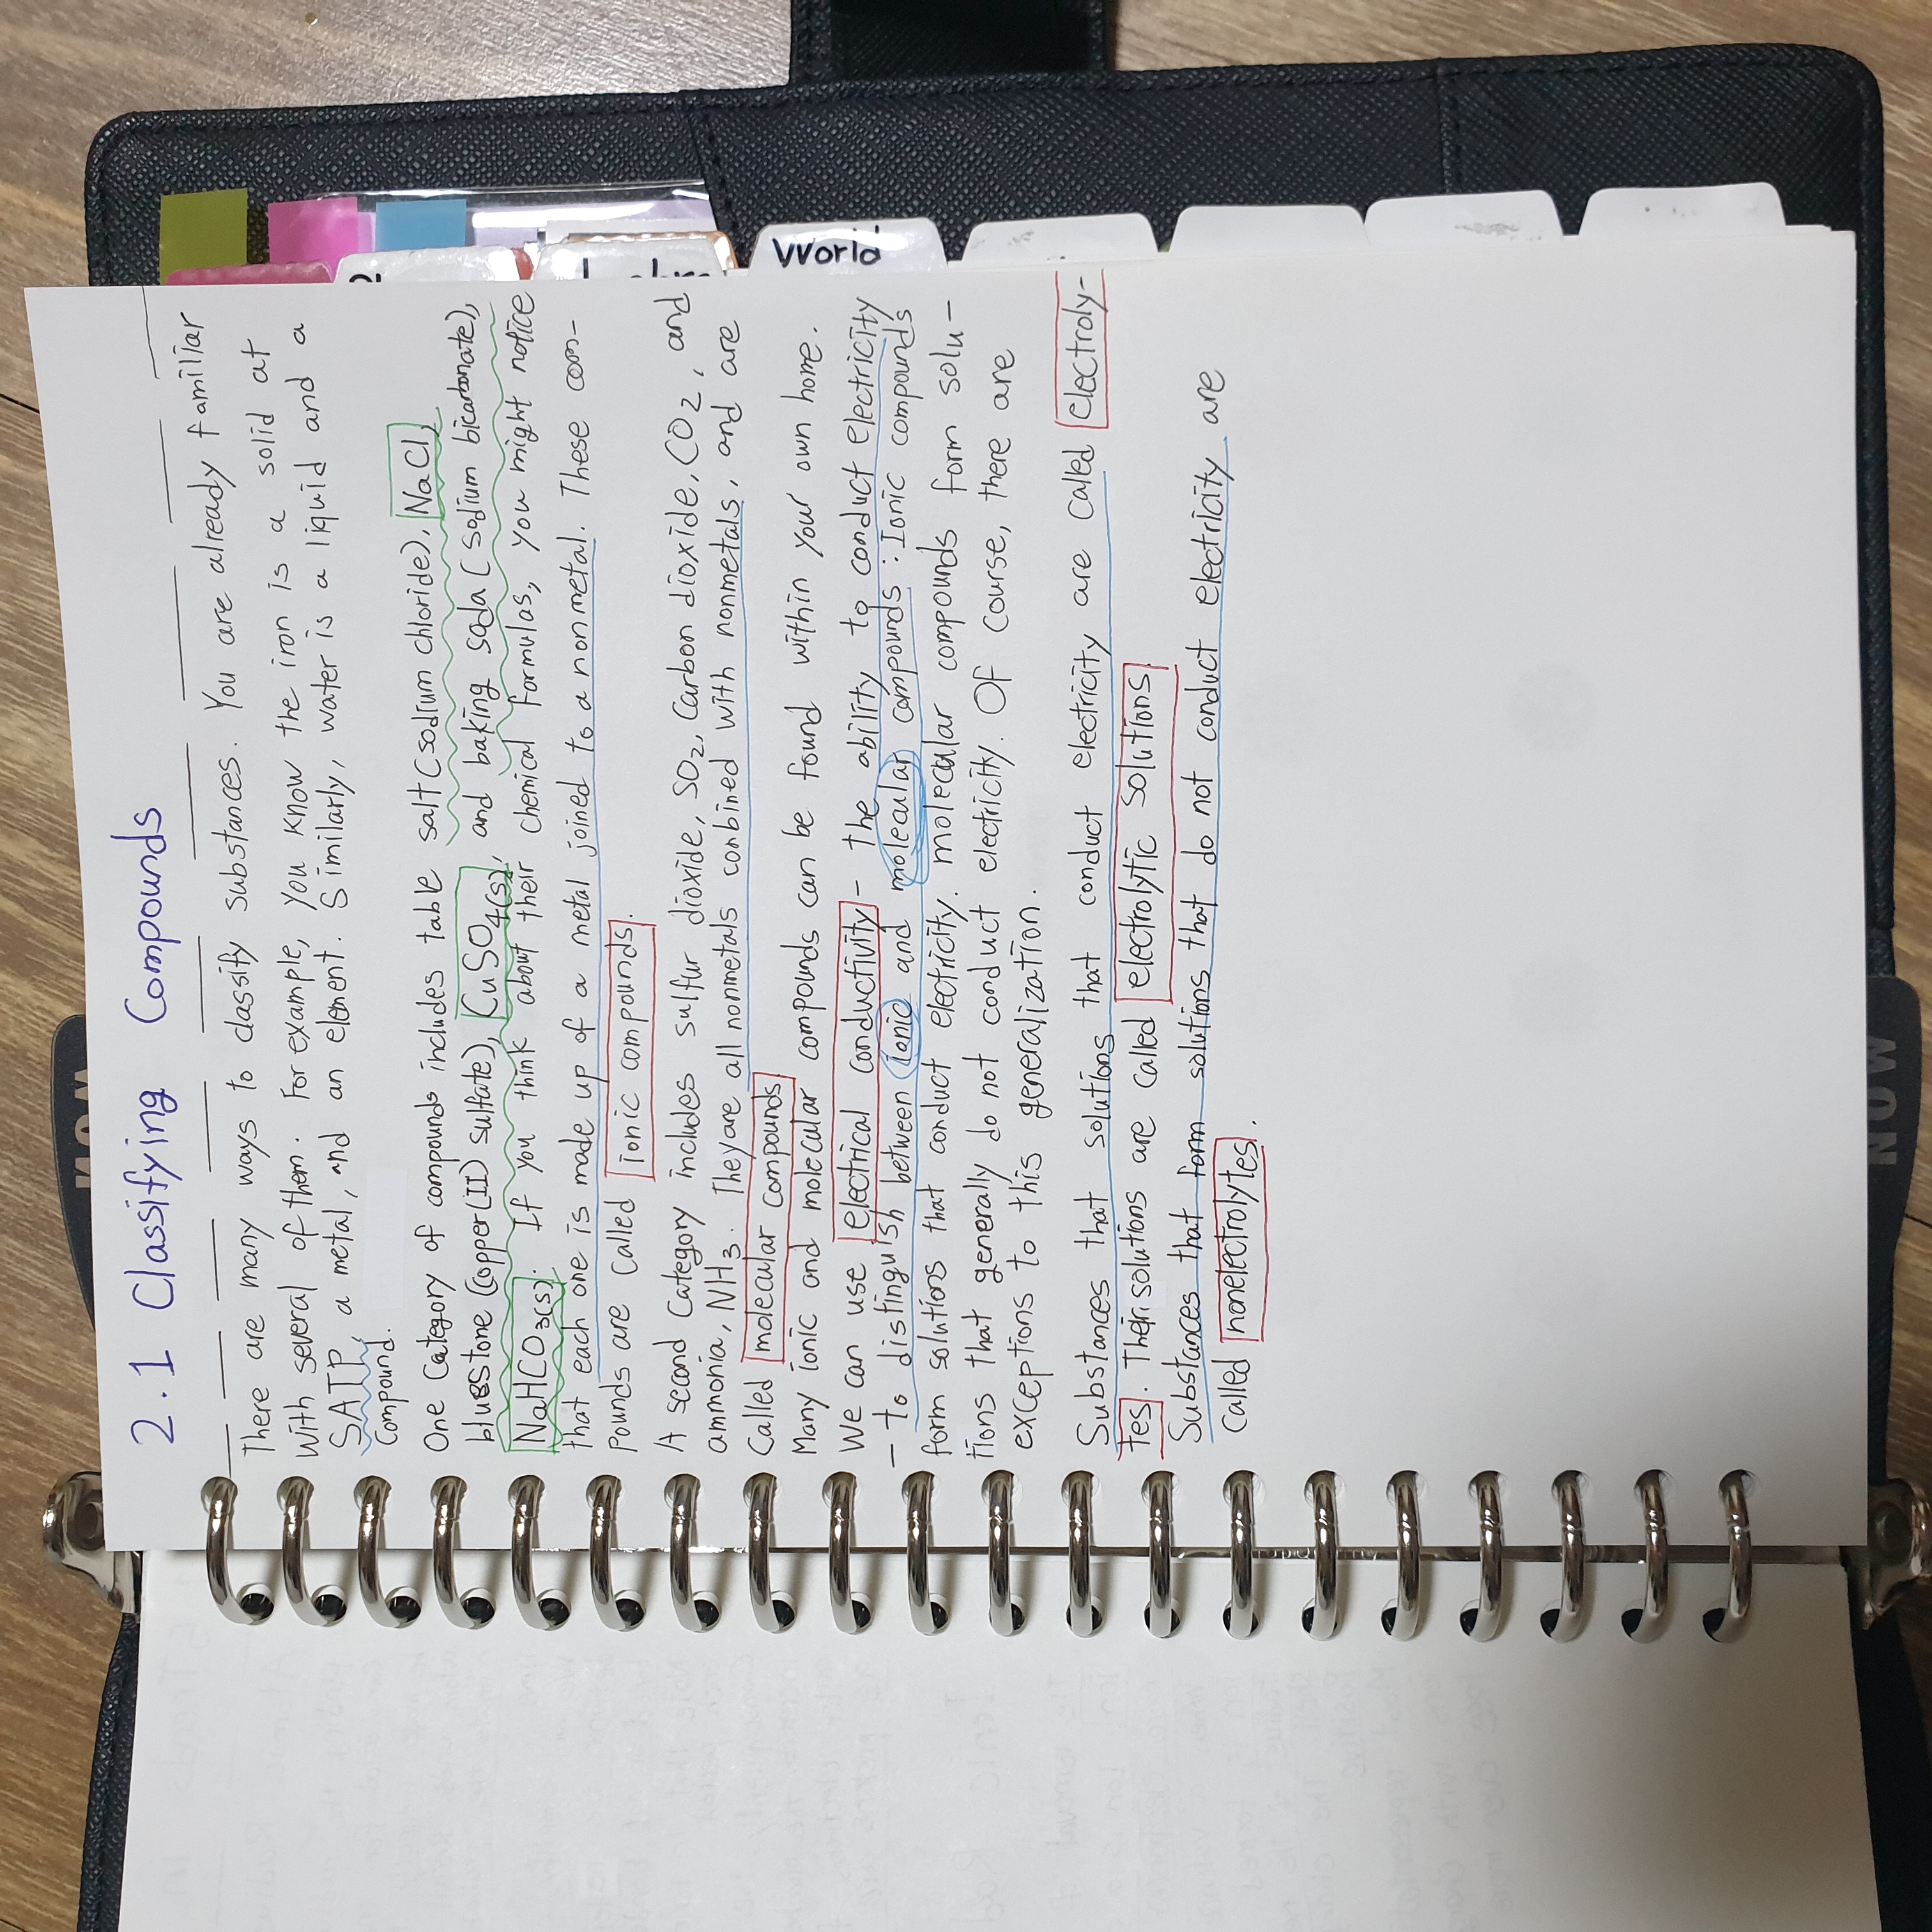 World
2.1 Classifying Compounds
There are many ways to classify substances. You are already familiar
with several of them. For example, you know the iron is a solid at
SATP, a metal, and an element. Similarly, water is a liquid and a
compound.
One Category of compounds includes table salt (sodium chloride), NaCl,
bluestone (copper(II) sulfate), CuSO4(s), and baking soda (sodium bicarbonate),
NaHCO3(s). If you think about their chemical formulas, you might notice
that each one is made up of a metal joined to a nonmetal. These com-
pounds are called ionic compounds.
A second Category includes sulfur dioxide, SO2, Carbon dioxide, CO2, and
ammonia, NH3. They are all nonmetals conbined with nonmetals, and are
Called molecular compounds
Many ionic and molecular compounds can be found within your own home.
We can use electrical conductivity - the ability to conduct electricity
- to distinguish between ionic and molecular compounds : Ionic compounds
form solutions that conduct electricity. molecular compounds form solu-
tions that generally do not conduct electricity. Of course, there are
exceptions to this generalization.
Substances that solutions that conduct electricity are called electroly-
tes. Their solutions are called electrolytic solutions
Substances that form solutions that do not conduct electricity are
Called nonelectrolytes.
NOW
NOW